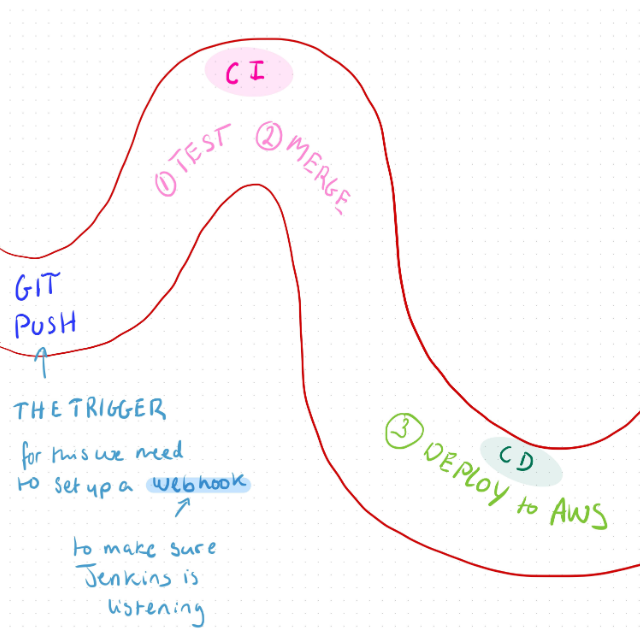 CI
① TEST
② MERGE
GIT
PUSH
THE TRIGGER
for this we need
to set up a webhook
to make sure
Jenkins is
listening
CD
③ DEPLOY to AWS